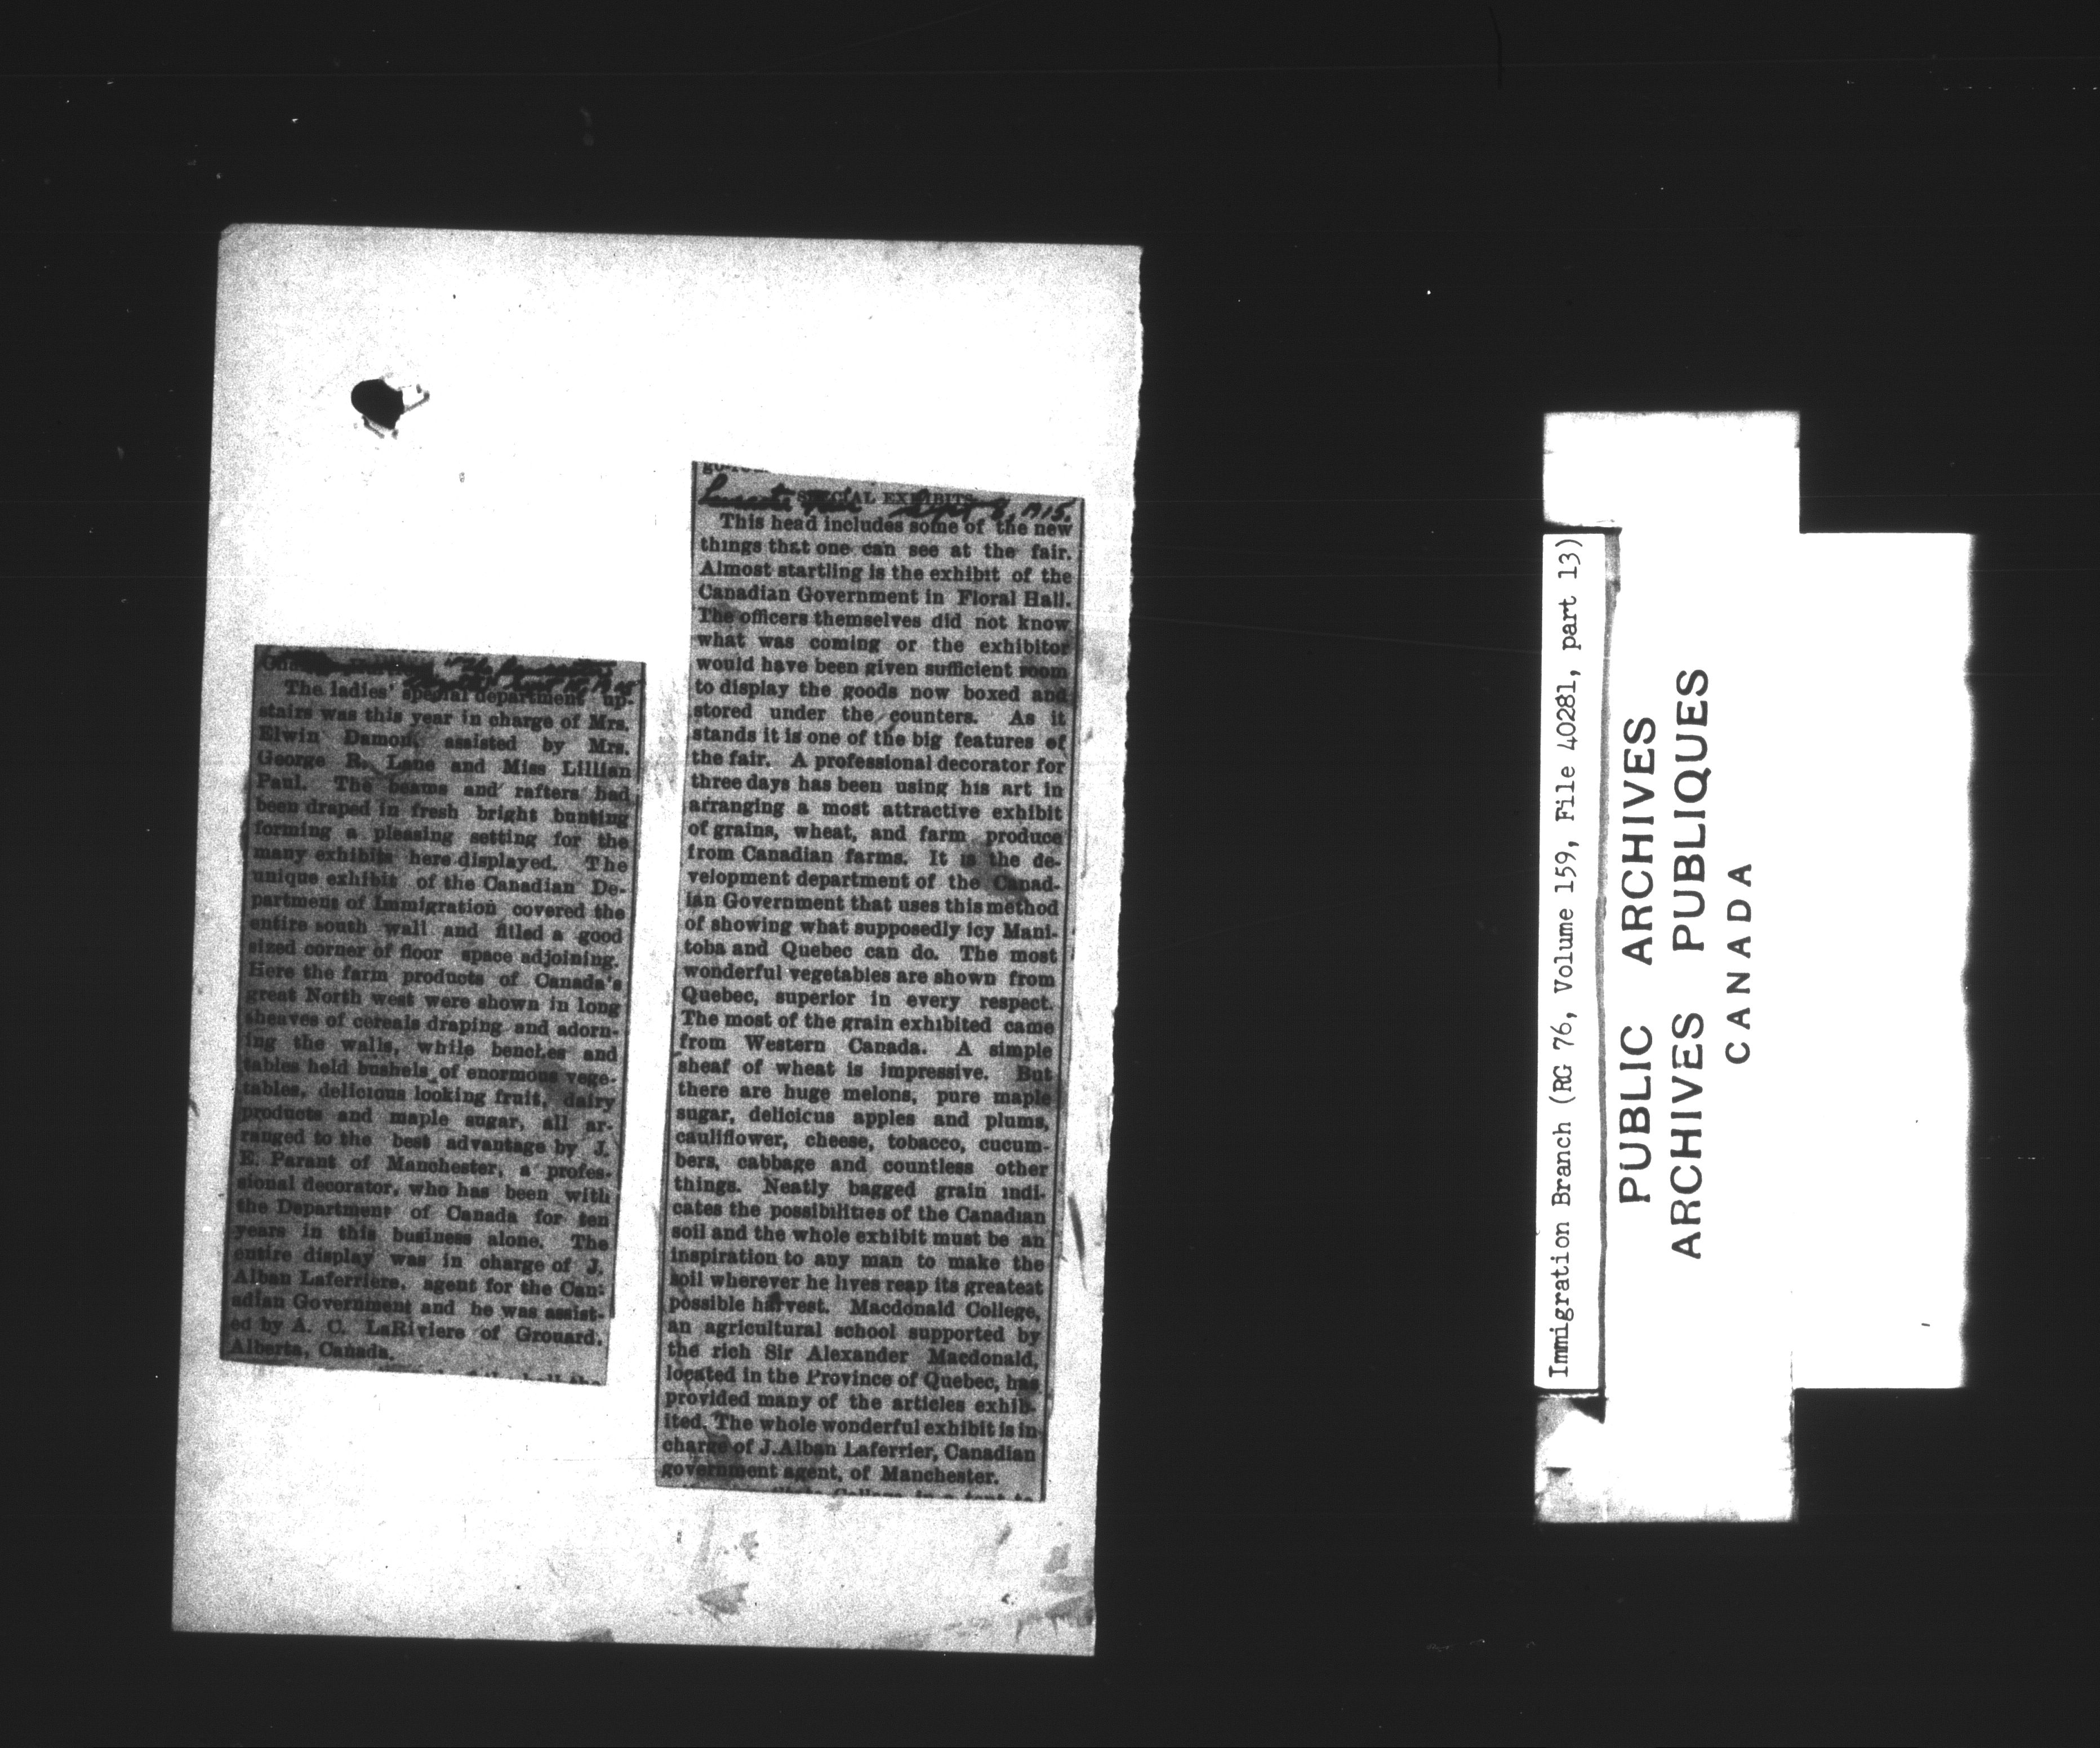 The ladies' special department up-
stairs was this year in charge of Mrs.
Elwin Damon, assisted by Mrs.
George R. Lane and Miss Lillian
Paul. The beams and rafters had
been draped in fresh bright bunting
forming a pleasing setting for the
many exhibits here displayed. The
unique exhibit of the Canadian De-
partment of Immigration covered the
entire south wall and filled a good
sized corner of floor space adjoining.
Here the farm products of Canada's
great North west were shown in long
sheaves of cereals draping and adorn-
ing the walls, while benches and
tables held bushels of enormous vege-
tables, delicious looking fruit, dairy
products and maple sugar, all ar-
ranged to the best advantage by J.
E. Parant of Manchester, a profes-
sional decorator, who has been with
the Department of Canada for ten
years in this business alone. The
entire display was in charge of J.
Alban Laferriere, agent for the Can-
adian Government and he was assist-
ed by A. C. LaRiviere of Grouard,
Alberta, Canada.
SPECIAL EXHIBITS
Fair Sept 8, 1915.
This head includes some of the new
things that one can see at the fair.
Almost startling is the exhibit of the
Canadian Government in Floral Hall.
The officers themselves did not know
what was coming or the exhibitor
would have been given sufficient room
to display the goods now boxed and
stored under the counters. As it
stands it is one of the big features of
the fair. A professional decorator for
three days has been using his art in
arranging a most attractive exhibit
of grains, wheat, and farm produce
from Canadian farms. It is the de-
velopment department of the Canad-
ian Government that uses this method
of showing what supposedly icy Mani-
toba and Quebec can do. The most
wonderful vegetables are shown from
Quebec, superior in every respect.
The most of the grain exhibited came
from Western Canada. A simple
sheaf of wheat is impressive. But
there are huge melons, pure maple
sugar, delicicus apples and plums,
cauliflower, cheese, tobacco, cucum-
bers, cabbage and countless other
things. Neatly bagged grain indi-
cates the possibilities of the Canadian
soil and the whole exhibit must be an
inspiration to any man to make the
soil wherever he lives reap its greatest
possible harvest. Macdonald College,
an agricultural school supported by
the rich Sir Alexander Macdonald,
located in the Province of Quebec, has
provided many of the articles exhib-
ited. The whole wonderful exhibit is in
charge of J.Alban Laferrier, Canadian
government agent, of Manchester.
Immigration Branch (RG 76, Volume 159, File 40281, part 13)
PUBLIC ARCHIVES
ARCHIVES PUBLIQUES
CANADA